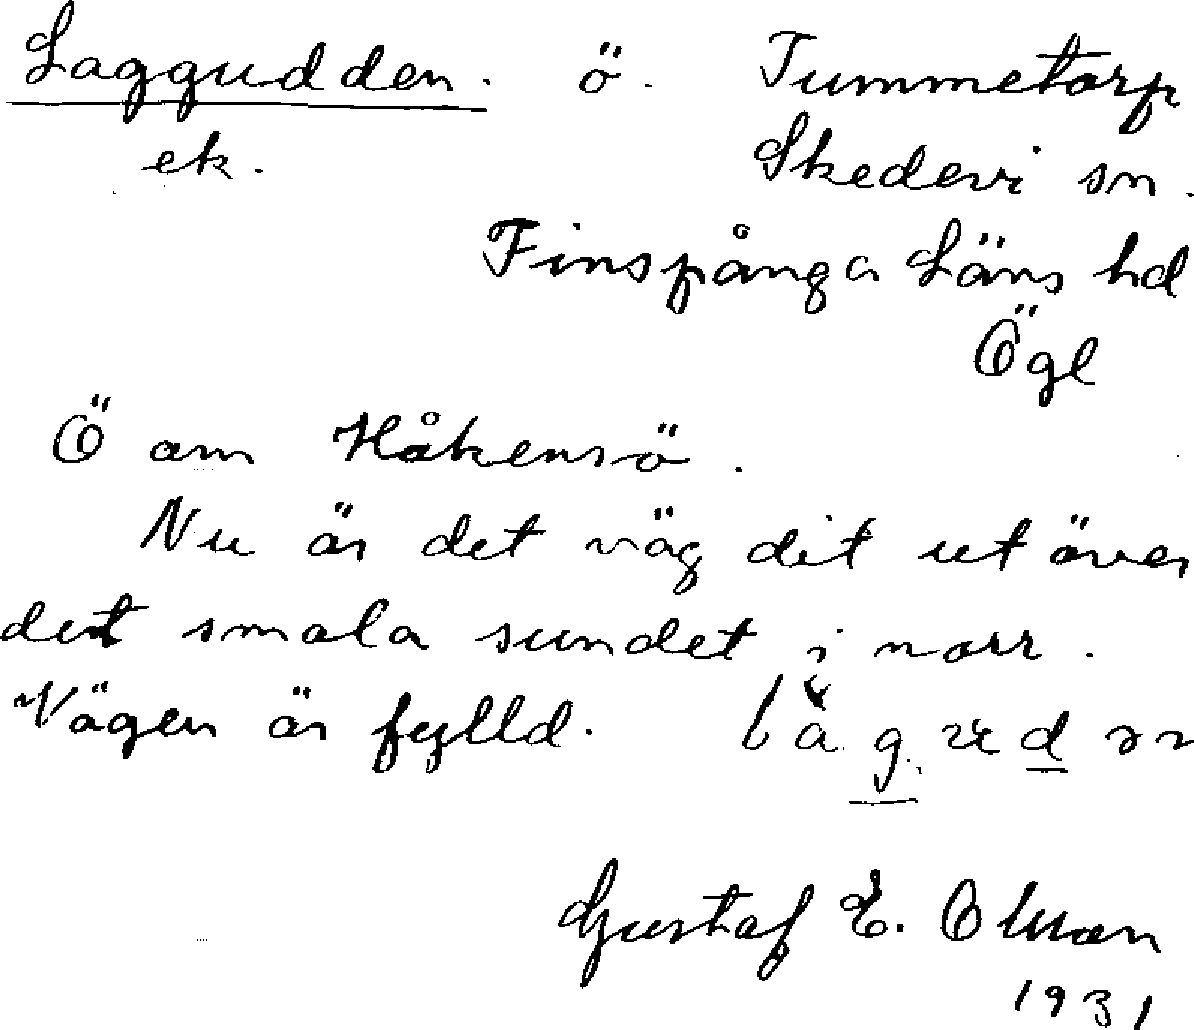 Laggudden. ö. Tummetorp
ek. Skedevi sn.
Finspånga Läns hd
Ögl
Ö om Håkensö.
Nu är det väg dit ut över
det smala sundet i norr.
Vägen är fylld.
Gustaf E. Olman
1931